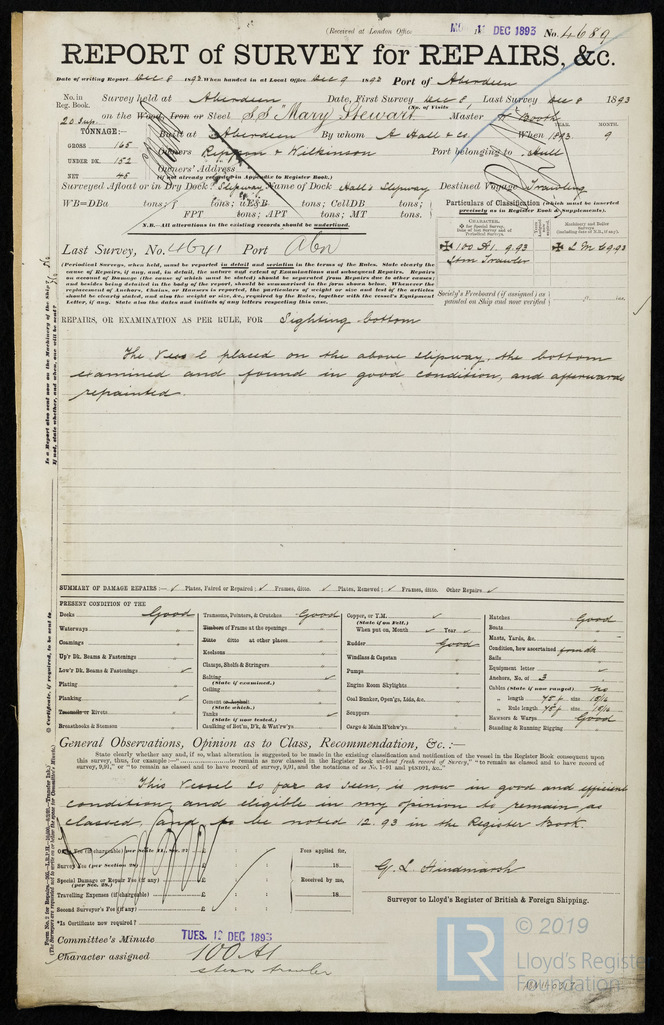 (Received at London Office
DEC 1893 No. 4689
REPORT of SURVEY for REPAIRS, &c.
Date of writing Report Dec 8 1893. When handed in at Local Office Dec 9 1893 Port of Aberdeen
No. in Reg. Book. Survey held at Aberdeen Date, First Survey Dec 8, Last Survey Dec 8 1893
(No. of Visits
20 Sup. on the Wood, Iron or Steel S.S "Mary Stewart" Master Booth
TONNAGE:— Built at Aberdeen By whom A Hall & Co. When 1893 YEAR. MONTH. 9
GROSS 165 Owners Rippon & Wilkinson Port belonging to Hull
UNDER DK. 152 Owners' Address
(if not already recorded in Appendix to Register Book.)
NET 45
Surveyed Afloat or in Dry Dock? Slipway Name of Dock Hall's Slipway Destined Voyage Trawling
WB=DBa tons; f tons; uE&B tons; CellDB tons;
FPT tons; APT tons; MT tons.
N.B.—All alterations in the existing records should be underlined.
Particulars of Classification (which must be inserted precisely as in Register Book & Supplements).
CHARACTER.
for Special Survey.
Date of last Survey and of Periodical Surveys.
Machinery and Boiler Surveys (including date of N.B., if any).
✠ 100 A1. 9.93 ✠ L M C 9.93
Stm Trawler
Society's Freeboard (if assigned) as painted on Ship and now verified ft. ins.
Last Survey, No. 4641 Port Abn
(Periodical Surveys, when held, must be reported in detail and seriatim in the terms of the Rules. State clearly the
cause of Repairs, if any, and, in detail, the nature and extent of Examinations and subsequent Repairs. Repairs
on account of Damage (the cause of which must be stated) should be separated from Repairs due to other causes;
and besides being detailed in the body of the report, should be summarised in the form shown below. Whenever the
replacement of Anchors, Chains, or Hawsers is reported, the particulars of weight or size and test of the articles
should be clearly stated, and also the weight or size, &c., required by the Rules, together with the vessel's Equipment
Letter, if any. State also the dates and initials of any letters respecting this case.
REPAIRS, OR EXAMINATION AS PER RULE, FOR Sighting bottom
The Vessel placed on the above slipway, the bottom
examined and found in good condition, and afterwards
repainted.
SUMMARY OF DAMAGE REPAIRS:— ✓ Plates, Faired or Repaired; ✓ Frames, ditto. ✓ Plates, Renewed; ✓ Frames, ditto. Other Repairs ✓
PRESENT CONDITION OF THE
Decks Good
Waterways "
Coamings "
Up'r Dk. Beams & Fastenings "
Low'r Dk. Beams & Fastenings ✓
Plating "
Planking ✓
Treenails or Rivets "
Breasthooks & Stemson "
Transoms, Pointers, & Crutches Good
Timbers or Frame at the openings "
Ditto ditto at other places "
Keelsons "
Clamps, Shelfs & Stringers "
Salting ✓
(State if examined.)
Ceiling "
Cement or Asphalt "
(State which.)
Tanks ✓
(State if now tested.)
Caulking of Bot'm, D'k, & Wat'rw'ys "
Copper, or Y.M. ✓
(State if on Felt.)
When put on, Month ✓ Year ✓
Rudder Good
Windlass & Capstan "
Pumps "
Engine Room Skylights "
Coal Bunker, Open'gs, Lids, &c. "
Scuppers "
Cargo & Main H'tchw'ys "
Hatches Good
Boats "
Masts, Yards, &c. "
Condition, how ascertained from dk
Sails "
Equipment letter ✓
Anchors, No. of 3
Cables (State if now ranged) no
" length 45 f size 15/16
" Rule length 45 f size 15/16
Hawsers & Warps Good
Standing & Running Rigging "
General Observations, Opinion as to Class, Recommendation, &c.:—
State clearly whether any, and if so, what alteration is suggested to be made in the existing classification and notification of the vessel in the Register Book consequent upon
this survey, thus, for example:—" to remain as now classed in the Register Book without fresh record of Survey," "to remain as classed and to have record of
survey, 9,91," or "to remain as classed and to have record of survey, 9,91, and the notations of
This Vessel so far as seen, is now in good and efficient
condition, and eligible in my opinion to remain as
classed, and to be noted 12.93 in the Register Book.
Office Fee (if chargeable) per Scale II., Sec. 27 £ : :
Survey Fee (per Section 28) £ : :
Special Damage or Repair Fee (if any) £ : :
(per Sec. 28.)
Travelling Expenses (if chargeable) £ : :
Second Surveyor's Fee (if any) £ : :
Fees applied for,
18
Received by me,
18
G. L. Hindmarsh
Surveyor to Lloyd's Register of British & Foreign Shipping.
*Is Certificate now required?
Committee's Minute TUES. 12 DEC 1893
Character assigned 100 A1
steam trawler
Is a Report also sent now on the Machinery of the Ship? No
If not, state whether, and when, one will be sent?
Certificate, if required, to be sent to
(The Surveyors are requested not to write on or below the space for Committee's Minute.)
© 2019
LR
Lloyd's Register
Foundation